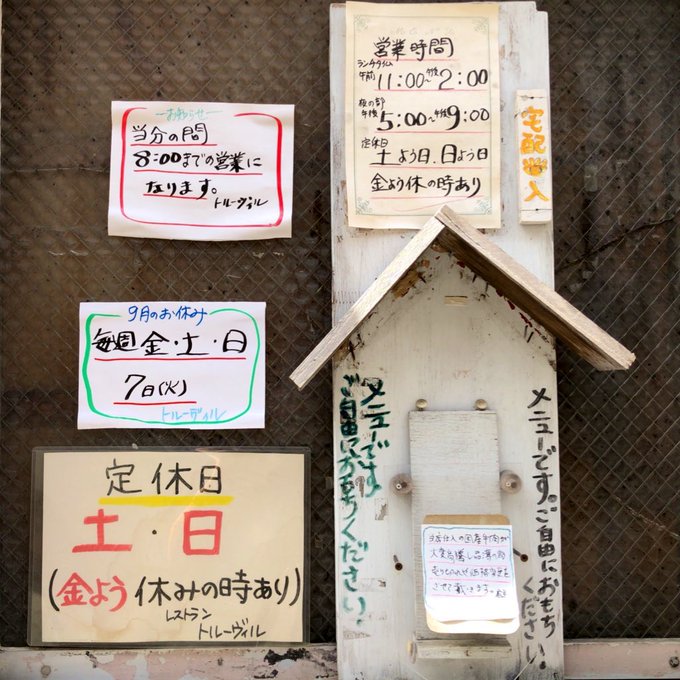 お知らせ
当分の間
8:00までの営業に
なります。
トルーヴィル
9月のお休み
毎週金・土・日
7日(火)
トルーヴィル
定休日
土・日
(金よう休みの時あり)
レストラン
トルーヴィル
営業時間
ランチタイム
午前11:00〜午後2:00
夜の部
午後5:00〜午後9:00
定休日
土よう日.日よう日
金よう休の時あり
宅配 入
メニューです。
ご自由におもちください。
メニューです。ご自由におもち
ください。
国産牛肉が
させて戴きます